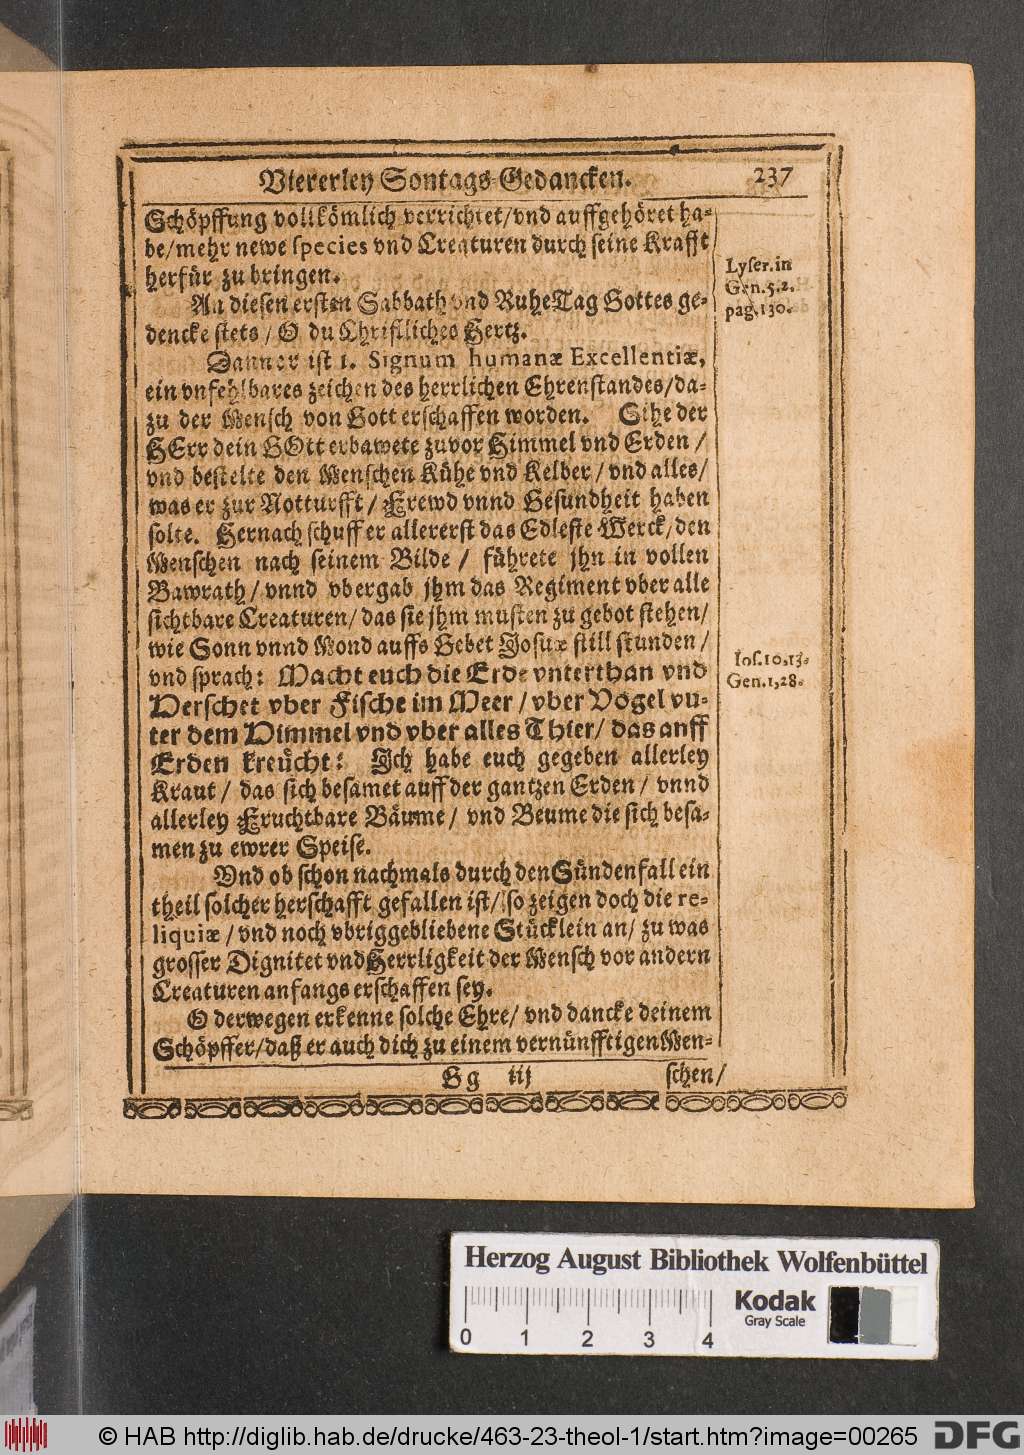 Viererley Sontags-Gedancken. 237
Schöpffung vollkömlich verrichtet/vnd auffgehöret ha-
be/mehr newe species vnd Creaturen durch seine Krafft
herfür zu bringen.
Lyser.in
Gen.5.2.
pag.130.
An diesen ersten Sabbath vnd RuheTag Gottes ge-
dencke stets/ O du Christliches Hertz.
Dann er ist 1. Signum humanæ Excellentiæ,
ein vnfehlbares zeichen des herrlichen Ehrenstandes/da-
zu der Mensch von Gott erschaffen worden. Sihe der
HErr dein GOtt erbawete zuvor Himmel vnd Erden/
vnd bestelte den Menschen Kühe vnd Kelber/ vnd alles/
was er zur Notturfft/ Frewd vnnd Gesundheit haben
solte. Hernach schuff er allererst das Edleste Werck/den
Menschen nach seinem Bilde/ führete jhn in vollen
Bawrath/ vnnd vbergab jhm das Regiment vber alle
sichtbare Creaturen/ das sie jhm musten zu gebot stehen/
wie Sonn vnnd Mond auffs Gebet Josuæ still stunden/
Ios.10,13.
Gen.1,28.
vnd sprach: Macht euch die Erde vnterthan vnd
Herschet vber Fische im Meer/ vber Vogel vn-
ter dem Himmel vnd vber alles Thier/ das auff
Erden kreucht: Ich habe euch gegeben allerley
Kraut/ das sich besamet auff der gantzen Erden/ vnnd
allerley Fruchtbare Bäume/ vnd Beume die sich besa-
men zu ewrer Speise.
Vnd ob schon nachmals durch den Sündenfall ein
theil solcher herschafft gefallen ist/ so zeigen doch die re-
liquiæ/ vnd noch vbriggebliebene Stücklein an/ zu was
grosser Dignitet vnd Herrligkeit der Mensch vor andern
Creaturen anfangs erschaffen sey.
O derwegen erkenne solche Ehre/ vnd dancke deinem
Schöpffer/daß er auch dich zu einem vernünfftigen Men-
Gg iij schen/
Herzog August Bibliothek Wolfenbüttel
0 1 2 3 4
Kodak
Gray Scale
© HAB http://diglib.hab.de/drucke/463-23-theol-1/start.htm?image=00265
DFG